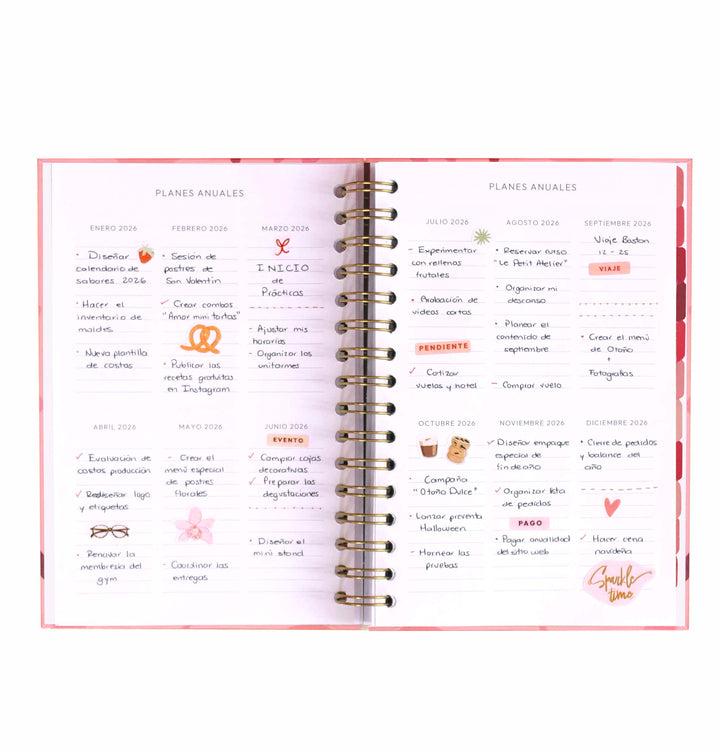 PLANES ANUALES
ENERO 2026
• Diseñar
calendario de
sabores 2026
• Hacer el
inventario de
moldes
• Nueva plantilla
de costos
FEBRERO 2026
• Sesión de
postres de
San Valentín
✓ Crear combos
"Amor mini tartas"
• Publicar las
recetas gratuitas
en Instagram
MARZO 2026
INICIO
de
Prácticas
- Ajustar mis
horarios
- Organizar los
uniformes
ABRIL 2026
✓ Evaluación de
costos producción
✓ Rediseñar logo
y etiquetas
• Renovar la
membresía del
gym
MAYO 2026
- Crear el
menú especial
de postres
florales
- Coordinar las
entregas
JUNIO 2026
EVENTO
✓ Comprar cajas
decorativas
✓ Preparar las
degustaciones
• Diseñar el
mini stand
PLANES ANUALES
JULIO 2026
- Experimentar
con rellenos
frutales
• Grabación de
videos cortos
PENDIENTE
✓ Cotizar
vuelos y hotel
AGOSTO 2026
• Reservar curso
"Le Petit Atelier"
• Organizar mi
descanso
• Planear el
contenido de
septiembre
- Comprar vuelo
SEPTIEMBRE 2026
Viaje Boston
12 - 25
VIAJE
• Crear el menú
de Otoño
+
Fotografías
OCTUBRE 2026
• Campaña
"Otoño Dulce"
• Lanzar preventa
Halloween
- Hornear las
pruebas
NOVIEMBRE 2026
✓ Diseñar empaque
especial de
fin de año
✓ Organizar lista
de pedidos
PAGO
• Pagar anualidad
del sitio web
DICIEMBRE 2026
• Cierre de pedidos
y balance del
año
✓ Hacer cena
navideña
Sparkle
time